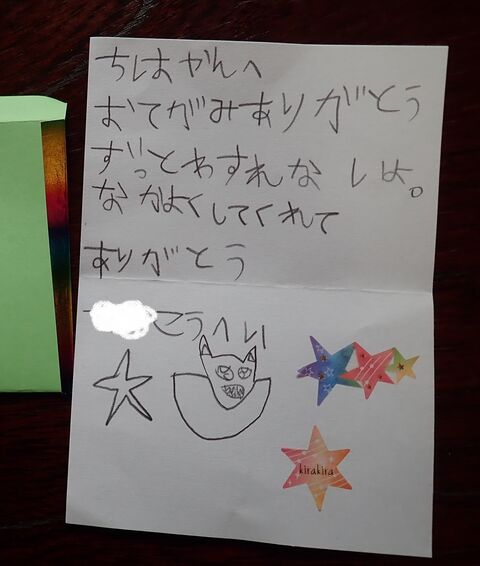 ちはやんへ
おてがみありがとう
ずっとわすれないよ。
なかよくしてくれて
ありがとう
こうへい
kirakira